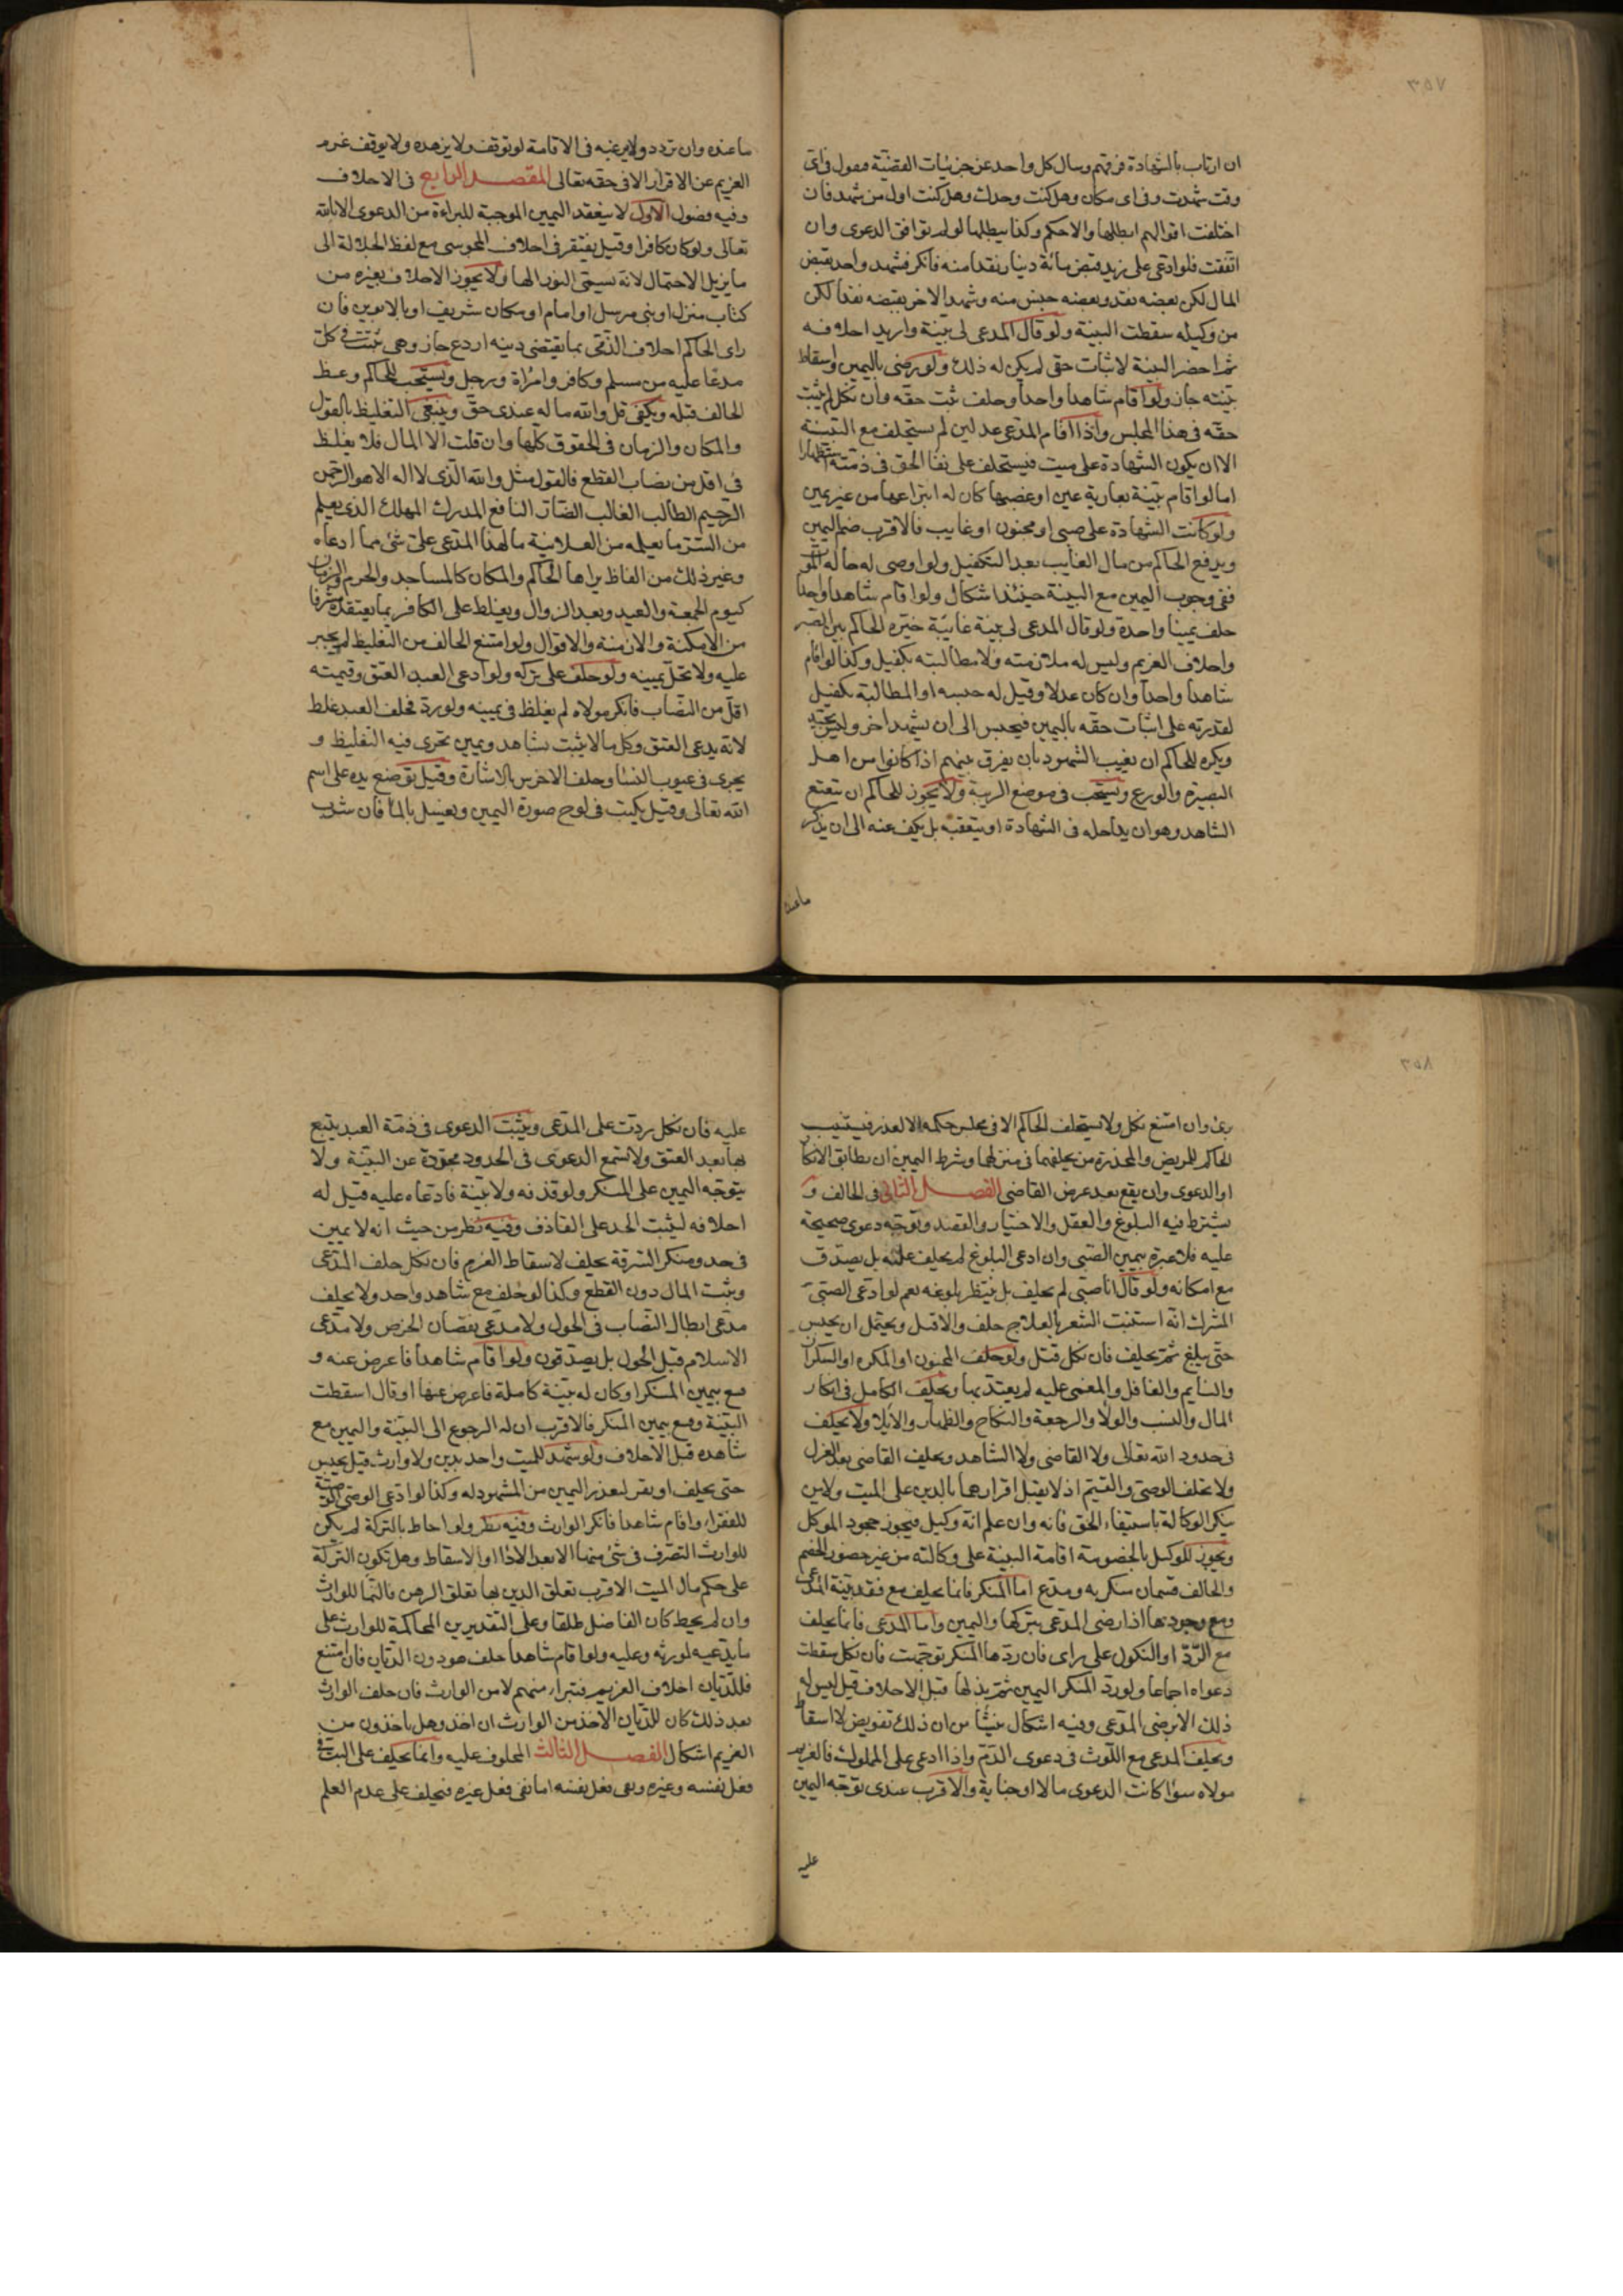 ٣٥٧
ان ارتاب بالشهادة فرقهم وسال كل واحد عن جزئيات القضيّة فيقول فى اى
وقت شهدت وفى اى مكان وهل كنت وحدك وهل كنت اول من شهد فان
اختلفت اقوالهم ابطلها والا حكم وكذا يبطلها لو لم توافق الدعوى وان
اتفقت فلو ادعى على زيد قبض مائة دينار نقدا منه فانكر فشهد واحد بقبض
المال لكن بعضه نقد وبعضه جنس منه وشهد الاخر بقبضه نقدا لكن
من وكيله سقطت البينة ولو قال المدعى لى بيّنة واريد احلافه
ثم احضر البينة لاثبات حقى لم يكن له ذلك ولو رضى باليمين واسقاط
بيّنته جاز ولو اقام شاهدا واحدا وحلف ثبت حقه وان نكل لم يثبت
حقه فى هذا المجلس واذا اقام المدعى عدلين لم يستحلف مع البيّنة
الا ان يكون الشهادة على ميت فيستحلف على بقا الحق فى ذمّته استظهارا
اما لو اقام بيّنة بعارية عين او غصبها كان له انتزاعها من غير يمين
ولو كانت الشهادة على صبى او مجنون او غايب فالاقرب ضم اليمين
ويدفع الحاكم من مال الغايب بعد التكفيل ولو اوصى له حالة الموت
ففى وجوب اليمين مع البينة حينئذ اشكال ولو اقام شاهدا واحدا
حلف يمينا واحدة ولو قال المدعى لى بينة غائبة خيّره الحاكم بين الصبر
واحلاف الغريم وليس له ملازمته ولا مطالبته بكفيل وكذا لو اقام
شاهدا واحدا وان كان عدلا وقيل له حبسه او المطالبة بكفيل
لقدرته على اثبات حقه باليمين فيحبس الى ان يشهد اخر وليس بجيّد
ويكره للحاكم ان يغيب الشهود بان يفرق بينهم اذا كانوا من اهل
البصيرة والورع ويستحب فى موضع الريبة ولا يجوز للحاكم ان يتعتع
الشاهد وهو ان يداخله فى الشهادة او يتعقبه بل يكف عنه الى ان يذكر
ما عنده
ما عنده وان تردد ولا يرغبه فى الاقامة لو توقف ولا يزهده ولا يوقف غرم
الغريم عن الاقرار الا فى حقه تعالى المقصد الرابع فى الاحلاف
وفيه فصول الاول لا ينعقد اليمين الموجبة للبراءة من الدعوى الا بالله
تعالى ولو كان كافرا وقيل يفتقر فى احلاف المجوسى مع لفظ الجلالة الى
ما يزيل الاحتمال لانه يسمّى النور الها ولا يجوز الاحلاف بغيره من
كتاب منزل او نبى مرسل او امام او مكان شريف او بالابوين فان
راى الحاكم احلاف الذمّى بما يقتضى دينه اردع جاز وهى تثبت فى كل
مدعا عليه من مسلم وكافر وامراة ورجل ويستحب للحاكم وعظ
الحالف قبله ويكفى قل والله ما له عندى حقّ وينبغى التغليظ بالقول
والمكان والزمان فى الحقوق كلّها وان قلت الا المال فلا يغلظ
فى اقل من نصاب القطع فالقول مثل والله الّذى لا اله الا هو الرحمن
الرحيم الطالب الغالب الضار النافع المدرك المهلك الذى يعلم
من السّر ما يعلمه من العلانية ما لهذا المدّعى علىّ شئ مما ادعاه
وغير ذلك من الفاظ يراها الحاكم والمكان كالمساجد والحرم والزمان
كيوم الجمعة والعيد وبعد الزوال ويغلظ على الكافر بما يعتقده مشرفا
من الامكنة والازمنة والاقوال ولو امتنع الحالف من التغليظ لم يجبر
عليه ولا تحلّ يمينه ولو حلف على تركه ولو ادعى العبد العتق وقيمته
اقلّ من النصاب فانكر مولاه لم يغلظ فى يمينه ولو ردّ فحلف العبد غلظ
لانه يدعى العتق وكل ما لا يثبت بشاهد ويمين تجرى فيه التغليظ و
يجرى فى عيوب النسا وحلف الاخرس بالاشارة وقيل توضع يده على اسم
الله تعالى وقيل يكتب فى لوح صورة اليمين ويغسل بالما فان شرب
٣٥٨
برئ وان امتنع نكل ولا يستحلف الحاكم الا فى مجلس حكمه الا لعذر فيستنيب
الحاكم للمريض والمخدرة من يحلفهما فى منزلهما وشرط اليمين ان يطابق الانكار
او الدعوى وان يقع بعد عرض القاضى الفصل الثانى فى الحالف و
يشترط فيه البلوغ والعقل والاختيار والقصد وتوجّه دعوى صحيحة
عليه فلا عبرة بيمين الصّبى وان ادعى البلوغ لم يحلف عليه بل يصدق
مع امكانه ولو قال انا صبى لم يحلف بل ينتظر بلوغه نعم لو ادعى الصبىّ
المشرك انّه استنبت الشعر بالعلاج حلف والا قتل ويحتمل ان يحبس
حتى يبلغ ثم يحلف فان نكل قتل ولو حلف المجنون او المكره او السكران
والنايم والغافل والمغمى عليه لم يعتدّ بها ويحلف الكامل فى انكار
المال والنسب والولا والرجعة والنكاح والظهار والايلا ولا يحلف
فى حدود الله تعالى ولا القاضى ولا الشاهد ويحلف القاضى بعد العزل
ولا يحلف الوصىّ والقيّم اذ لا يقبل اقرارهما بالدين على الميت ولا من
ينكر الوكالة باستيفاء الحق فانه وان علم انه وكيل فيجوز جحود الموكل
ويجوز للوكيل بالخصومة اقامة البينة على وكالته من غير حضور الخصم
والحالف قسمان منكر به ومدّع اما المنكر فانما يحلف مع فقد بيّنة المدّعى
ومع وجودها اذا رضى المدّعى بتركها واليمين واما المدّعى فانما يحلف
مع الرّدّ او النكول على راى فان ردّها المنكر توجّهت فان نكل سقطت
دعواه اجماعا ولو ردّ المنكر اليمين ثم بذلها قبل الاحلاف قيل ليس له
ذلك الا برضى المدّعى وفيه اشكال ينشا من ان ذلك تفويض لا اسقاط
ويحلف المدعى مع اللّوث فى دعوى الدّم واذا ادعى على المملوك فالغريم
مولاه سوا كانت الدعوى مالا او جناية والاقرب عندى توجّه اليمين
عليه
عليه فان نكل ردّت على المدّعى ويثبت الدعوى فى ذمّة العبد يتبع
بها بعد العتق ولا تسمع الدعوى فى الحدود مجرّدة عن البيّنة ولا
يتوجّه اليمين على المنكر ولو قذفه ولا بيّنة فادعاه عليه قيل له
احلافه ليثبت الحد على القاذف وفيه نظر من حيث انه لا يمين
فى حد ومنكر السّرقة يحلف لاسقاط الغرم فان نكل حلف المدّعى
ويثبت المال دون القطع وكذا لو حلف مع شاهد واحد ولا يحلف
مدعى ابطال النّصاب فى الحول ولا مدّعى نقصان الخرص ولا مدّعى
الاسلام قبل الحول بل يصدّقون ولو اقام شاهدا فاعرض عنه و
قنع بيمين المنكر او كان له بيّنة كاملة فاعرض عنها او قال اسقطت
البيّنة وقنع بيمين المنكر فالاقرب ان له الرجوع الى البيّنة واليمين مع
شاهده قبل الاحلاف ولو شهد للميت واحد بدين ولا وارث قيل يحبس
حتى يحلف او يقر لتعذر اليمين من المشهود له وكذا لو ادّعى الوصى الوصيّة
للفقراء واقام شاهدا فانكر الوارث وفيه نظر ولو احاط بالتركة لم يكن
للوارث التصرّف فى شئ منها الا بعد الاذا او الاسقاط وهل تكون التركة
على حكم مال الميت الاقرب تعلق الدين بها تعلق الرهن فالنّما للوارث
وان لم يحط كان الفاضل طلقا وعلى التقديرين المحاكمة للوارث على
ما يدّعيه لمورثه وعليه ولو اقام شاهدا حلف هو دون الديّان فان امتنع
فللدّيان احلاف الغريم فتبراء منهم لا من الوارث فان حلف الوارث
بعد ذلك كان للدّيان الاخذ من الوارث ان اخذ وهل ياخذون من
الغريم اشكال الفصل الثالث المحلوف عليه وانما يحلف على البتّ فى
فعل نفسه وغيره ونفى فعل نفسه اما نفى فعل غيره فيحلف على عدم العلم